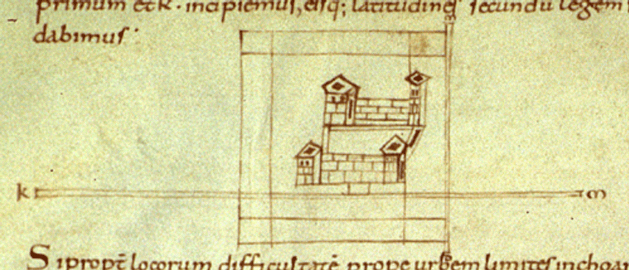 primum et k· incipiemus, eisq; latitudines secundu legem
dabimus·
k m
S i propt̄ locorum difficultatē prope urbem limites inchoar